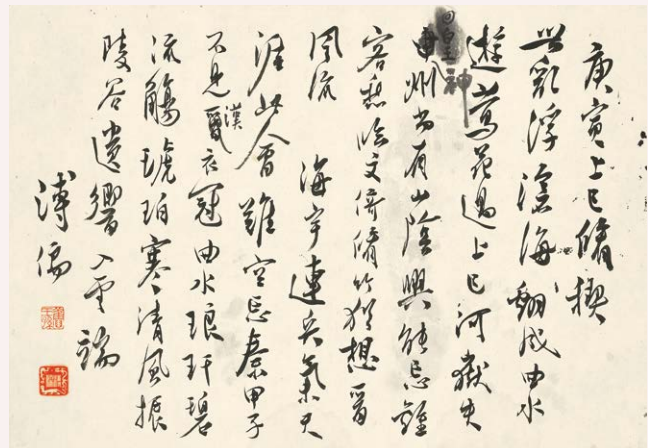 庚寅上巳脩禊
世亂浮滄海翻成曲水
遊鶯花過上巳河嶽失
神州尚有山陰興能忘
客愁臨文脩竹猶想晉
風流 海宇連兵氣天
涯此會難空忘秦甲子
不見漢衣冠曲水琅玕碧
流觴琥珀寒清風振
陵谷遺響入雲端
溥儒